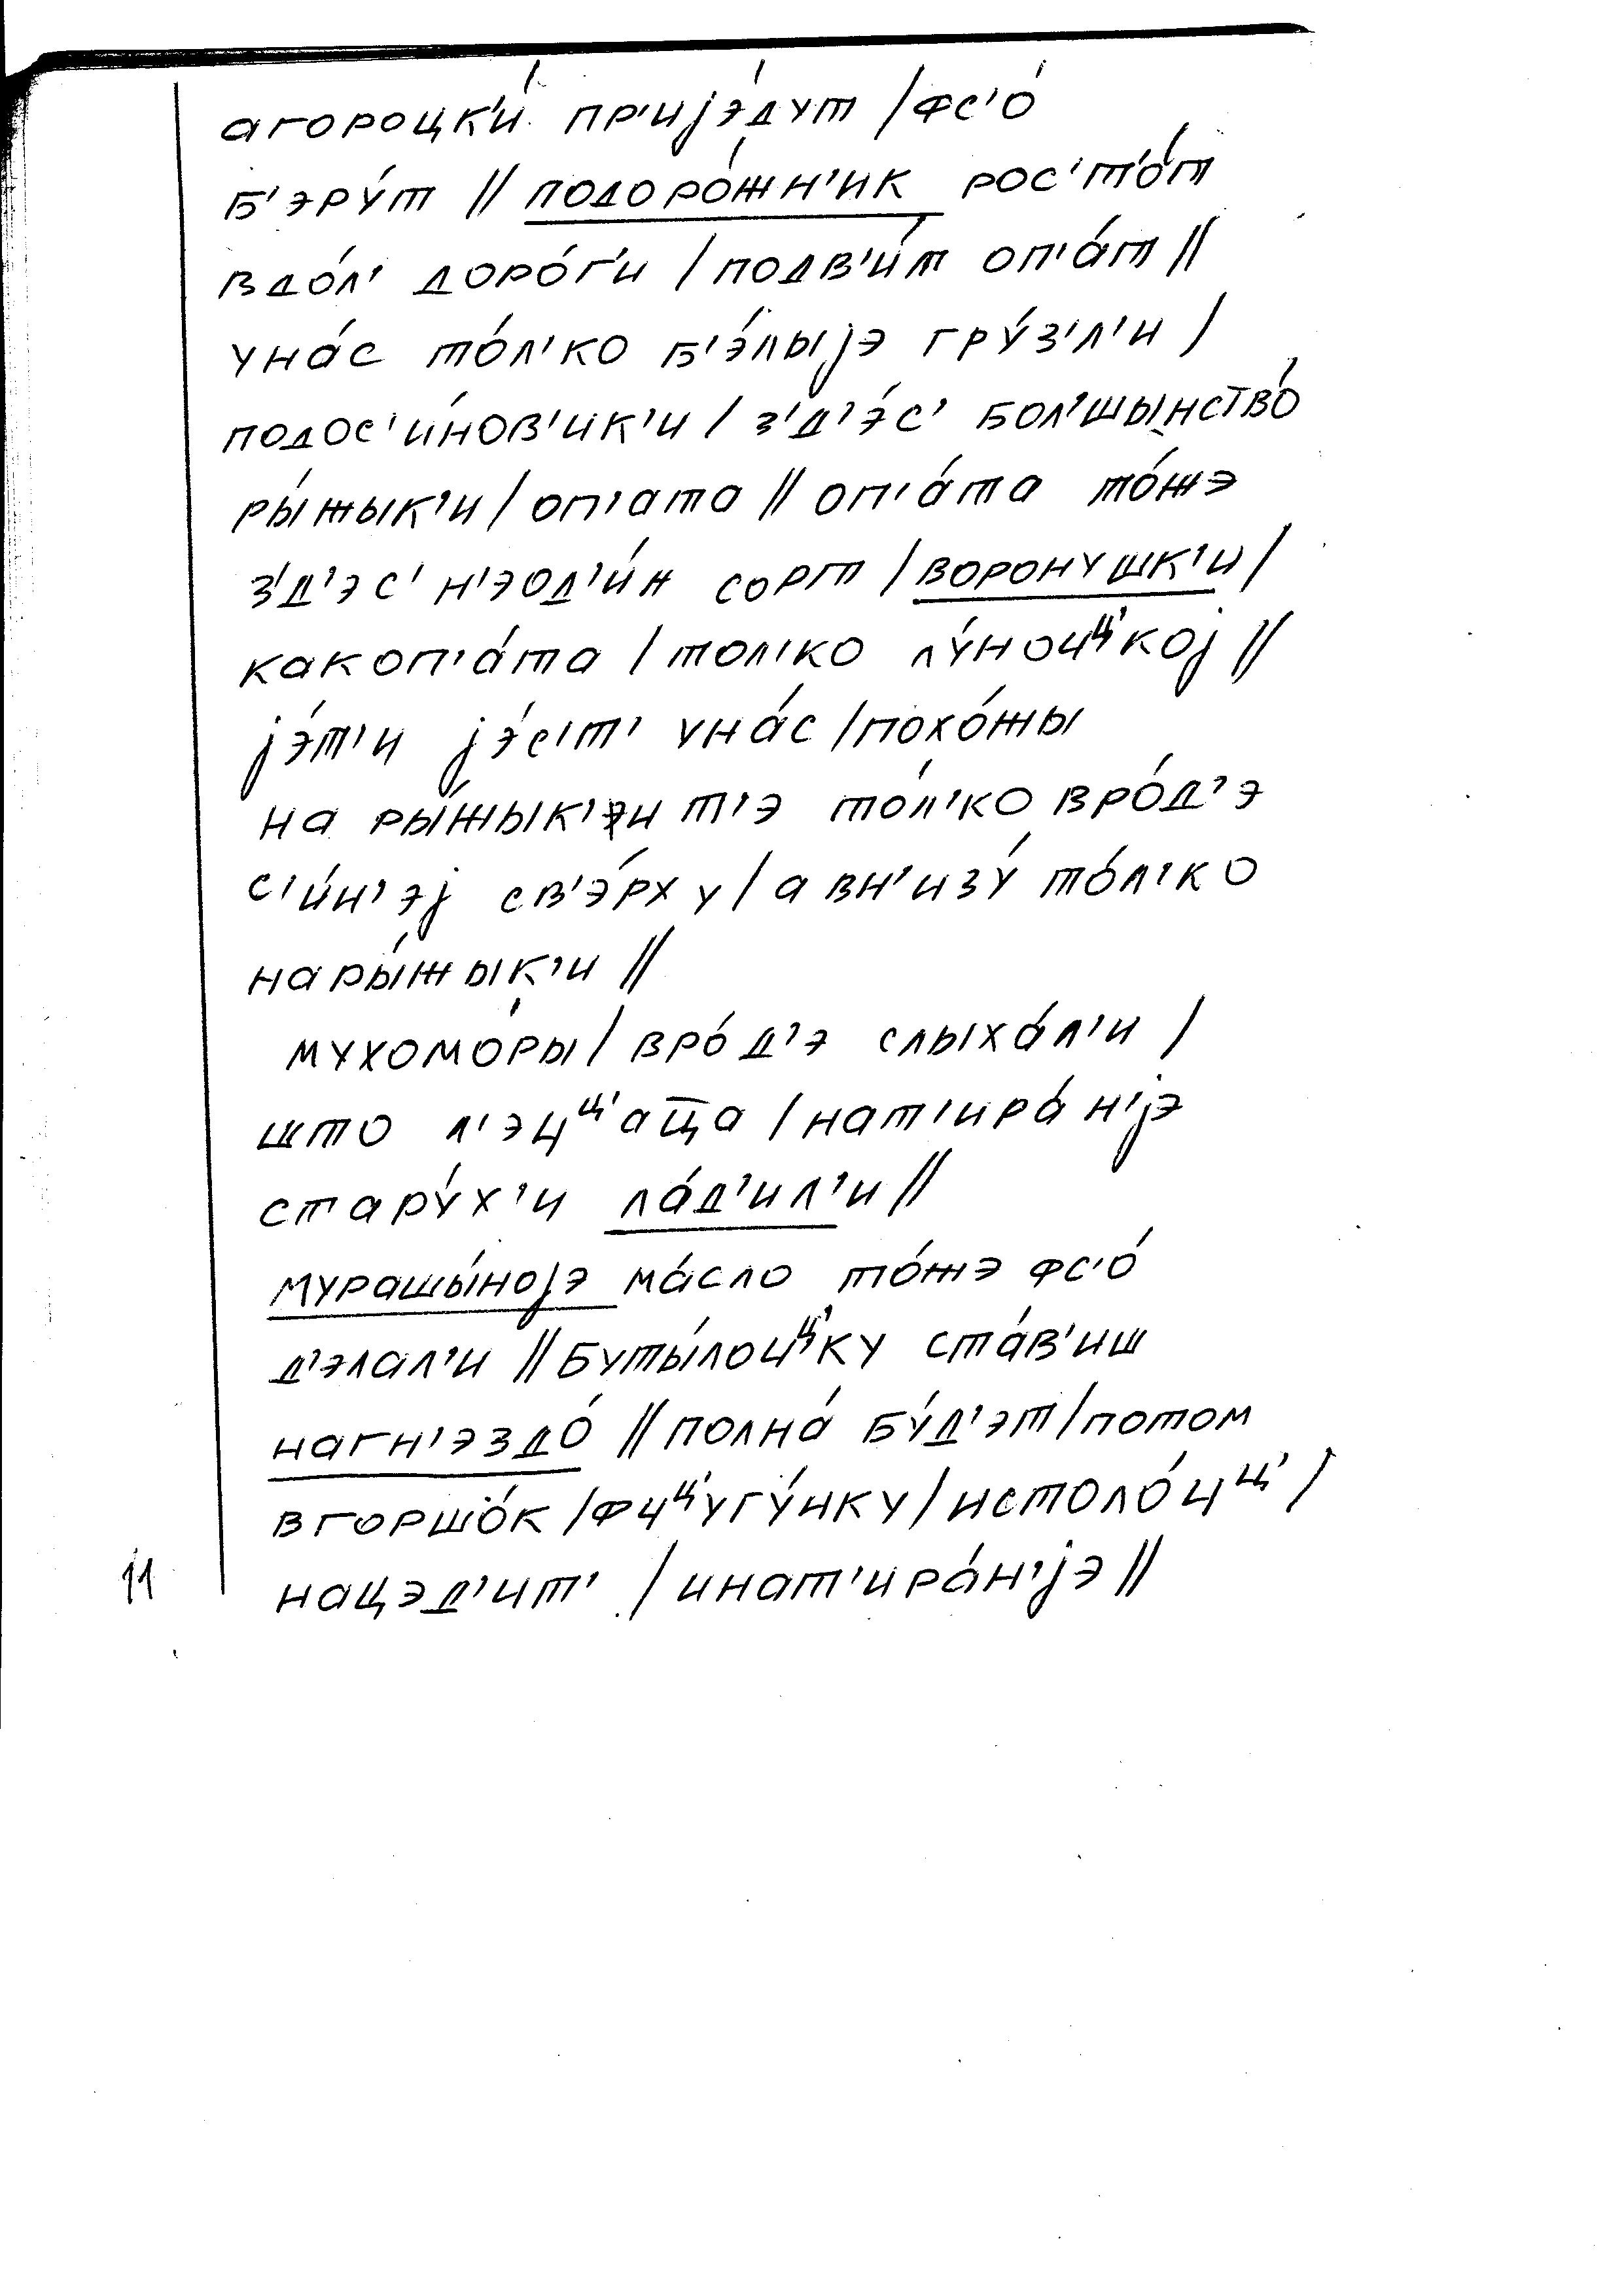 агороцк'и́ пр'иjэ́дут / фс'о́
б'эру́т // подоро́жн'ик рос'т'о́т
вдо́л' доро́г'и / подв'и́т оп'а́т //
уна́с то́л'ко б'э́лыjэ гру́з'л'и /
подос'и́нов'ик'и / з'д'э́с' бол'шынство́
ры́жык'и / оп'ата // оп'а́та то́жэ
з'д'эс' н'эод'и́н сорт / воронушк'и /
какоп'а́та / тол'ко лу́ноцᶣ'коj //
jэ́т'и jэ́с'т' уна́с / похо́жы
на ры́жык'и т'э то́л'ко вро́д'э
с'и́н'эj св'э́рху / а вн'изу́ то́л'ко
нары́жык'и //
мухомо́ры / вро́д'э слыха́л'и /
што л'эцᶣ'аца / нат'ира́н'jэ
стару́х'и ла́д'ил'и //
мурашы́ноjэ ма́сло то́жэ фс'о́
д'элал'и // буты́лоцᶣ'ку ста́в'иш
нагн'эздо́ // полна́ бу́д'эт / потом
вгоршо́к / фцᶣ'угу́нку / истоло́цᶣ' /
нацэд'ит' / инат'ира́н'jэ //
11